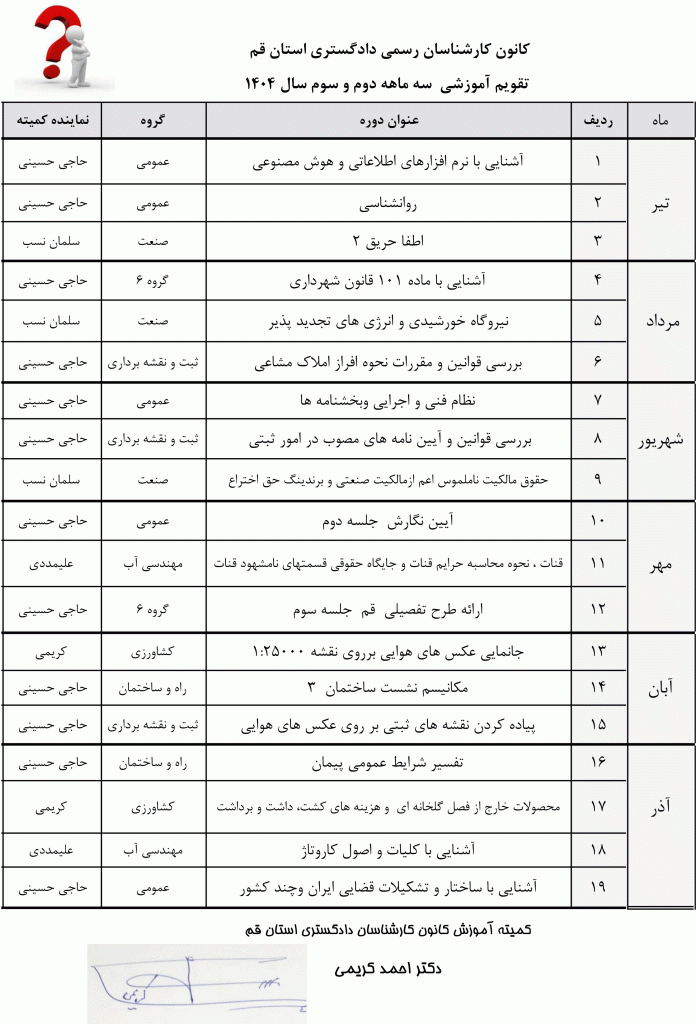 کانون کارشناسان رسمی دادگستری استان قم
تقویم آموزشی سه ماهه دوم و سوم سال ۱۴۰۴
ماه ردیف عنوان دوره گروه نماینده کمیته
تیر
۱ آشنایی با نرم افزارهای اطلاعاتی و هوش مصنوعی عمومی حاجی حسینی
۲ روانشناسی عمومی حاجی حسینی
۳ اطفا حریق ۲ صنعت سلمان نسب
مرداد
۴ آشنایی با ماده ۱۰۱ قانون شهرداری گروه ۶ حاجی حسینی
۵ نیروگاه خورشیدی و انرژی های تجدید پذیر صنعت سلمان نسب
۶ بررسی قوانین و مقررات نحوه افراز املاک مشاعی ثبت و نقشه برداری حاجی حسینی
شهریور
۷ نظام فنی و اجرایی وبخشنامه ها عمومی حاجی حسینی
۸ بررسی قوانین و آیین نامه های مصوب در امور ثبتی ثبت و نقشه برداری حاجی حسینی
۹ حقوق مالکیت ناملموس اعم ازمالکیت صنعتی و برندینگ حق اختراع صنعت سلمان نسب
مهر
۱۰ آیین نگارش جلسه دوم عمومی حاجی حسینی
۱۱ قنات ، نحوه محاسبه حرایم قنات و جایگاه حقوقی قسمتهای نامشهود قنات مهندسی آب علیمددی
۱۲ ارائه طرح تفصیلی قم جلسه سوم گروه ۶ حاجی حسینی
آبان
۱۳ جانمایی عکس های هوایی برروی نقشه ۱:۲۵۰۰۰ کشاورزی کریمی
۱۴ مکانیسم نشست ساختمان ۳ راه و ساختمان حاجی حسینی
۱۵ پیاده کردن نقشه های ثبتی بر روی عکس های هوایی ثبت و نقشه برداری حاجی حسینی
آذر
۱۶ تفسیر شرایط عمومی پیمان راه و ساختمان حاجی حسینی
۱۷ محصولات خارج از فصل گلخانه ای و هزینه های کشت، داشت و برداشت کشاورزی کریمی
۱۸ آشنایی با کلیات و اصول کاروتاژ مهندسی آب علیمددی
۱۹ آشنایی با ساختار و تشکیلات قضایی ایران وچند کشور عمومی حاجی حسینی
کمیته آموزش کانون کارشناسان دادگستری استان قم
دکتر احمد کریمی